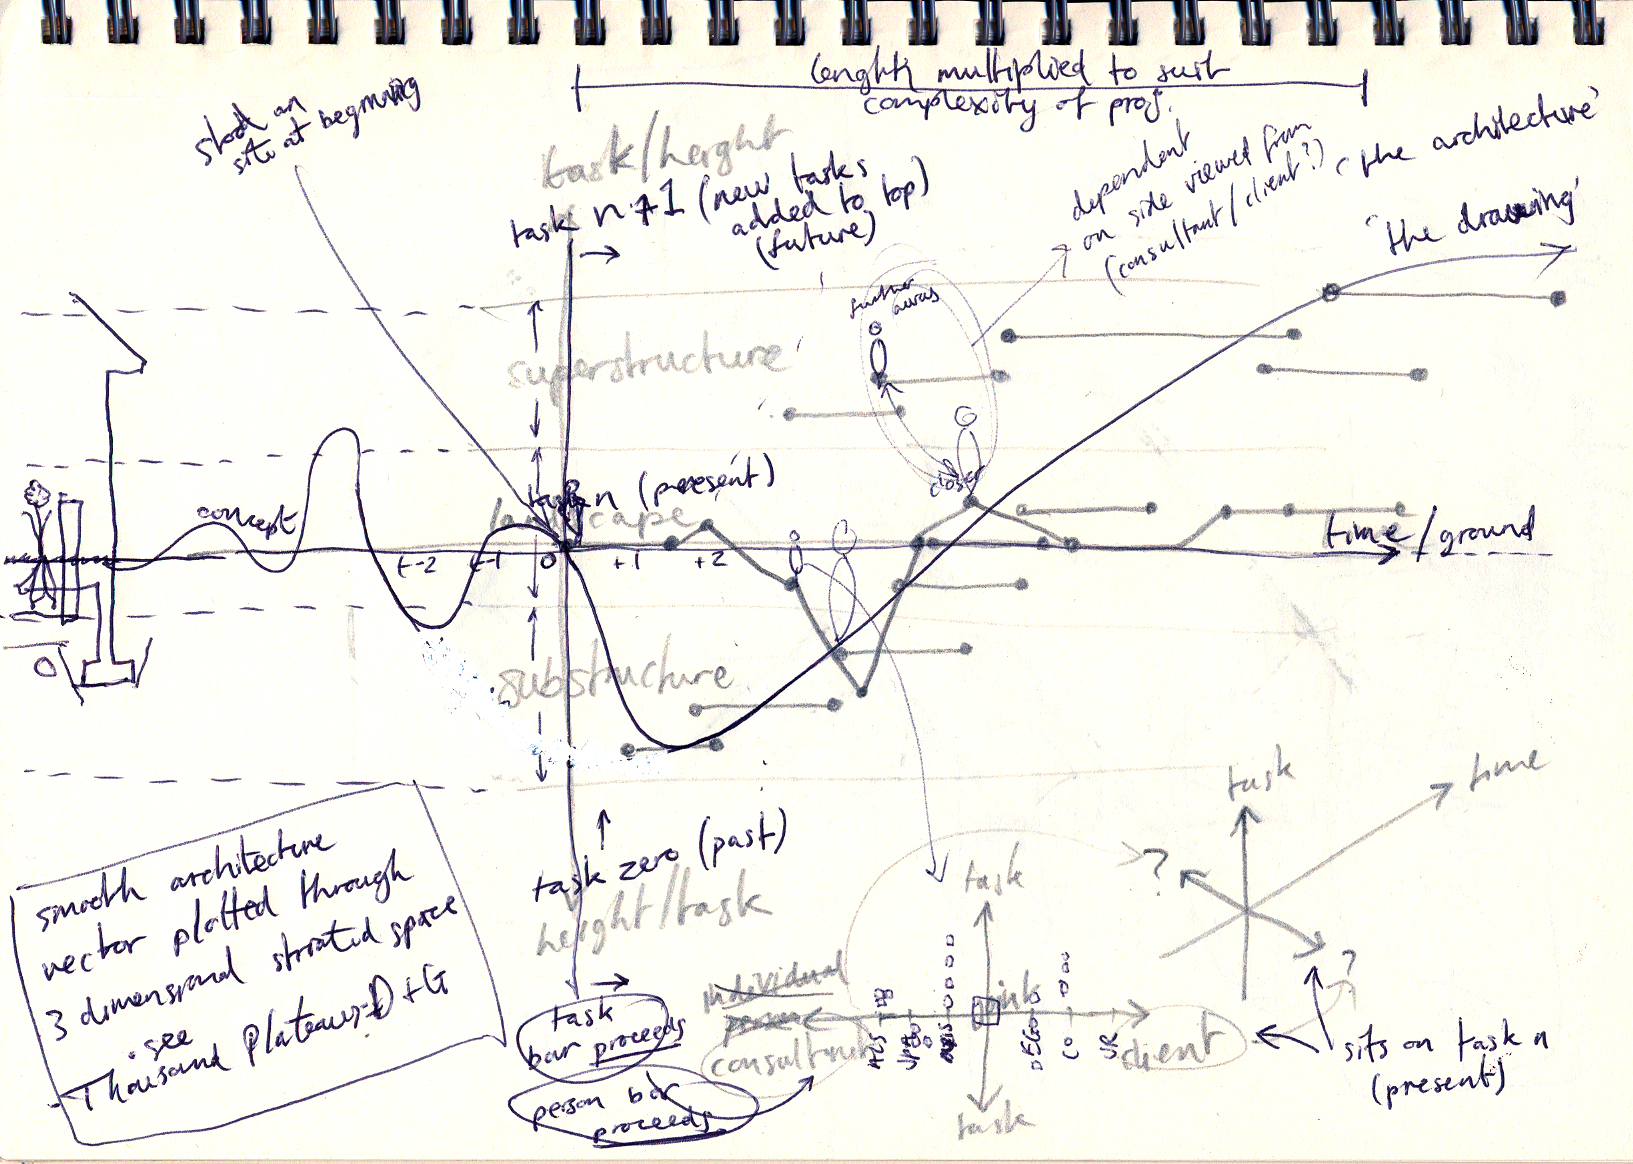 lenght multiplied to suit
complexity of proj.
stood on
site at beginning
task/height
task n+1 (new tasks
added to top)
(future)
dependent
on side viewed from
(consultant/client?)
'the architecture'
'the drawing'
further
away
superstructure
closer
task n (present)
landscape
concept
t-2
t-1
0
+1
+2
time/ground
0
substructure
task zero (past)
height/task
smooth architecture
vector plotted through
3 dimensional striated space
. see
- Thousand Plateaus - D + G
task
bar proceeds
person bar
proceeds
individual
person
consultant
task
client
task
task
time
?
?
sits on task n
(present)